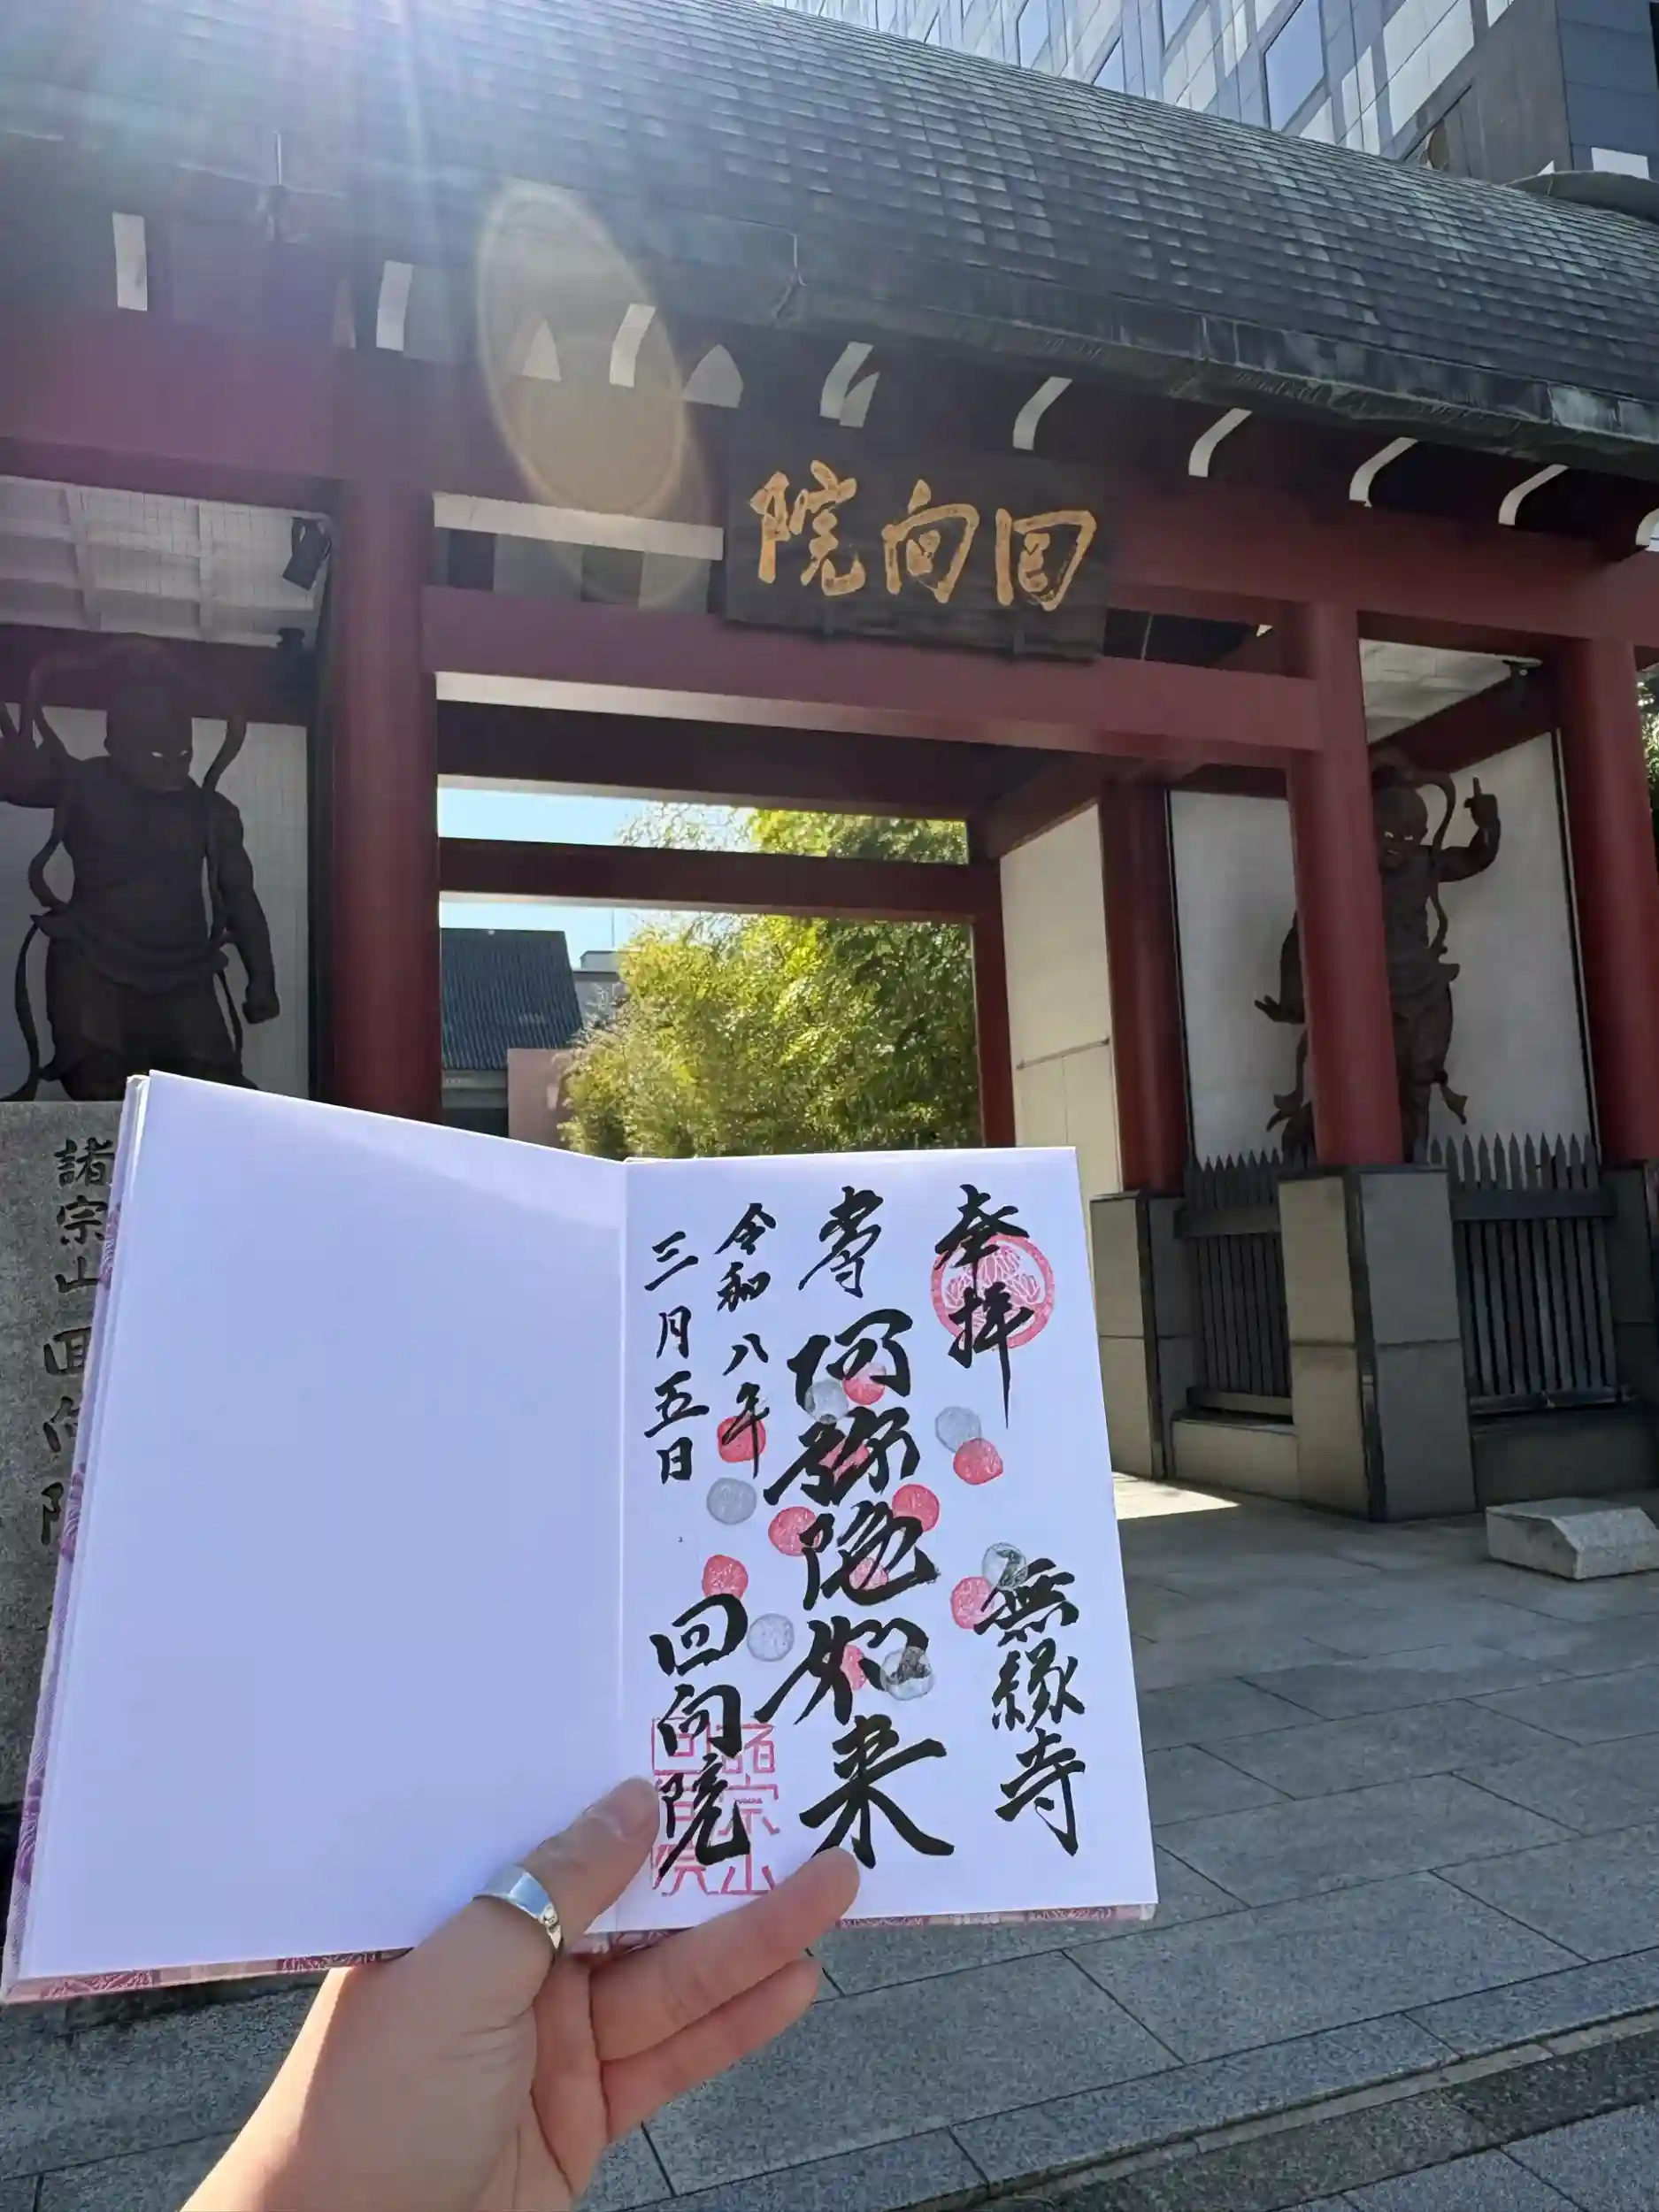 回向院
諸宗山回向院
奉拝
無縁寺
阿弥陀如来
令和八年
三月五日
回向院
諸宗山
回向院